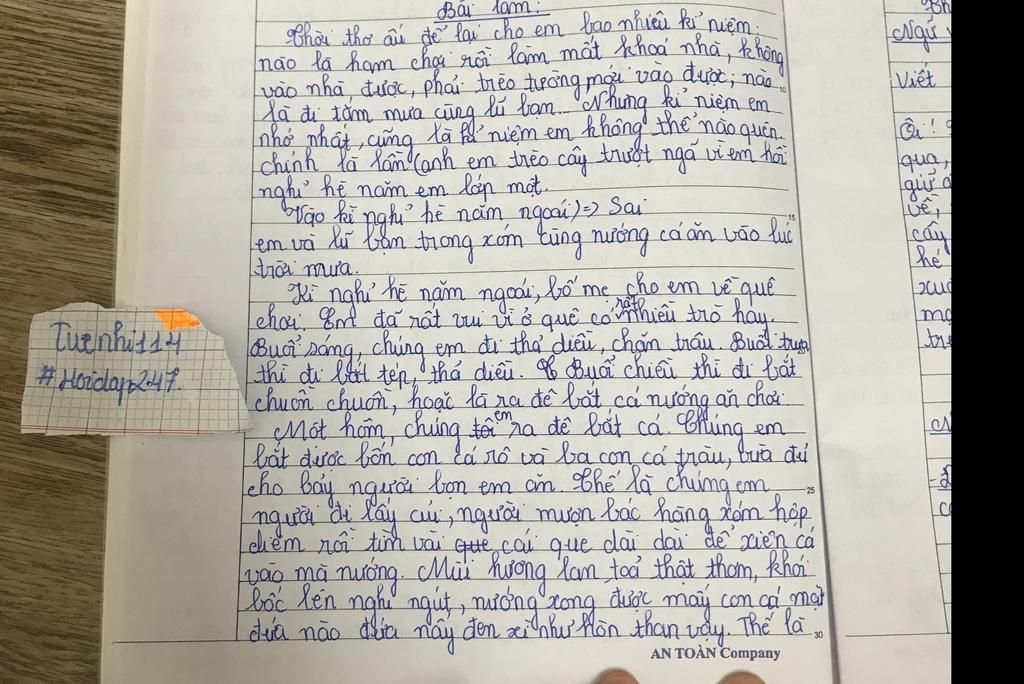 Bài làm:
Thời thơ ấu để lại cho em bao nhiêu kỉ niệm:
nào là ham chơi rồi làm mất khoá nhà, không
vào nhà, được, phải trèo tường mới vào được; nào
là đi tắm mưa cùng lũ bạn... Nhưng kỉ niệm em
nhớ nhất, cũng là kỉ niệm em không thể nào quên
chính là lần (anh em trèo cây trượt ngã vì em hồi
nghỉ hè năm em lớp một.
Vào kì nghỉ hè năm ngoái) => Sai
15
em và lũ bạn trong xóm cùng nướng cá ăn vào lúc
trời mưa.
Kì nghỉ hè năm ngoái, bố mẹ cho em về quê
chơi. Em đã rất vui vì ở quê có rất nhiều trò hay.
Buổi sáng, chúng em đi thả diều, chăn trâu. Buổi trưa
thì đi bắt tép, thả diều. Buổi chiều thì đi bắt
chuồn chuồn, hoặc là ra đê bắt cá nướng ăn chơi.
Một hôm, chúng tôi em ra đê bắt cá. Chúng em
bắt được bốn con cá rô và ba con cá tràu, vừa đủ
cho bảy người bọn em ăn. Thế là chúng em
25
người đi lấy củi, người mượn bác hàng xóm hộp
diêm rồi tìm vài que cái que dài dài để xiên cá
vào mà nướng. Mùi hương lan toả thật thơm, khói
bốc lên nghi ngút, nướng xong được mấy con cá mặt
đứa nào đứa nấy đen xì như hòn than vậy. Thế là
30
AN TOÀN Company
Tuenhi114
#Hoidap247.
Ngữ
Viết
Ôi!
qua,
giữ
về,
cấy
hé
xuc
mọ
trê